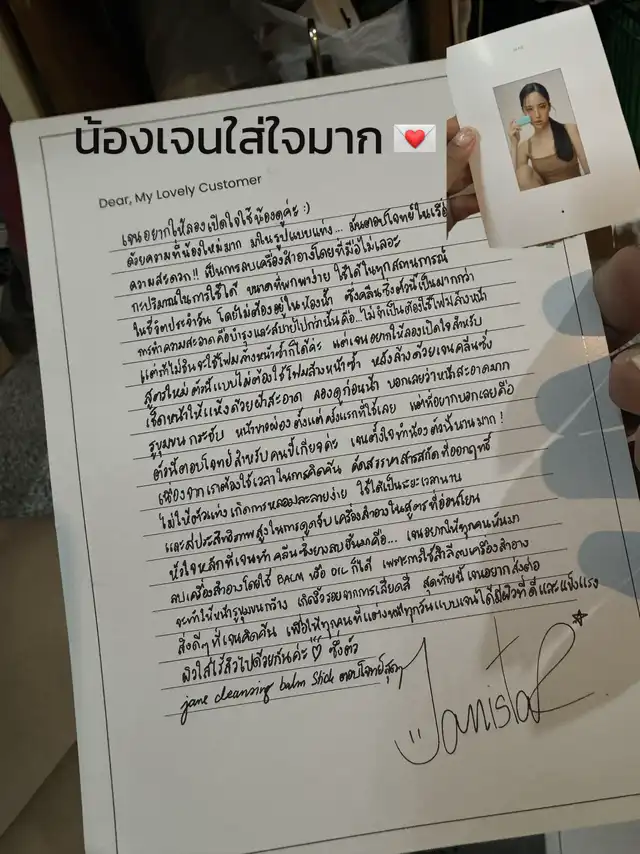 น้องเจนใส่ใจมาก 💌
Dear, My Lovely Customer
เจนอยากให้ลองเปิดใจใช้น้องดูค่ะ :)
ด้วยความที่น้องใหม่มาก มาในรูปแบบแท่ง... มันตอบโจทย์ในเรื่อ
ความสะดวก!! เป็นการลบเครื่องสำอางโดยที่มือไม่เลอะ
กะปริมาณในการใช้ได้ ขนาดที่พกพาง่าย ใช้ได้ในทุกสถานการณ์
ในชีวิตประจำวัน โดยไม่ต้องอยู่ในห้องน้ำ ซึ่งคลีนซิ่งตัวนี้เป็นมากกว่า
การทำความสะอาดคือบำรุงและสบายไปกว่านั้นคือ...ไม่จำเป็นต้องใช้โฟมล้างหน้า
แต่ถ้าไม่ชินจะใช้โฟมล้างหน้าซ้ำก็ได้ค่ะ แต่เจนอยากให้ลองเปิดใจสำหรับ
สูตรใหม่ ตัวนี้แบบไม่ต้องใช้โฟมล้างหน้าซ้ำ หลังล้างด้วยเจนคลีนซิ่ง
เช็ดหน้าให้แห้งด้วยผ้าสะอาด ลองดูก่อนน้า บอกเลยว่าหน้าสะอาดมาก
รูขุมขนกระชับ หน้าขาวผ่อง ตั้งแต่ครั้งแรกที่ใช้เลย แต่ที่อยากบอกเลยคือ
ตัวนี้ตอบโจทย์สำหรับคนขี้เกียจค่ะ เจนตั้งใจทำน้องตัวนี้นานมาก!
เนื่องจากเราต้องใช้เวลาในการคิดค้น คัดสรรหาสารสกัดที่ออกฤทธิ์
ไม่ให้ตัวแท่งเกิดการหลอมละลายง่าย ใช้ได้เป็นระยะเวลานาน
และมีประสิทธิภาพสูงในการดูดจับเครื่องสำอางในสูตรที่อ่อนโยน
หัวใจหลักที่เจนทำคลีนซิ่งบาล์มขึ้นมาคือ... เจนอยากให้ทุกคนหันมา
ลบเครื่องสำอางโดยใช้ BALM หรือ OIL ก็ได้ เพราะการใช้สำลีลบเครื่องสำอาง
จะทำให้หน้ารูขุมขนกว้าง เกิดริ้วรอยจากการเสียดสี สุดท้ายนี้เจนอยากส่งต่อ
สิ่งดีๆ ที่เจนคิดค้น เพื่อให้ทุกคนที่แต่งหน้าทุกวันแบบเจนได้มีผิวที่ดีและแข็งแรง
ผิวใสไร้สิวไปด้วยกันค่ะ ♡ ซึ่งตัว
jane cleansing balm Stick ตอบโจทย์สุดๆ
JanistaR